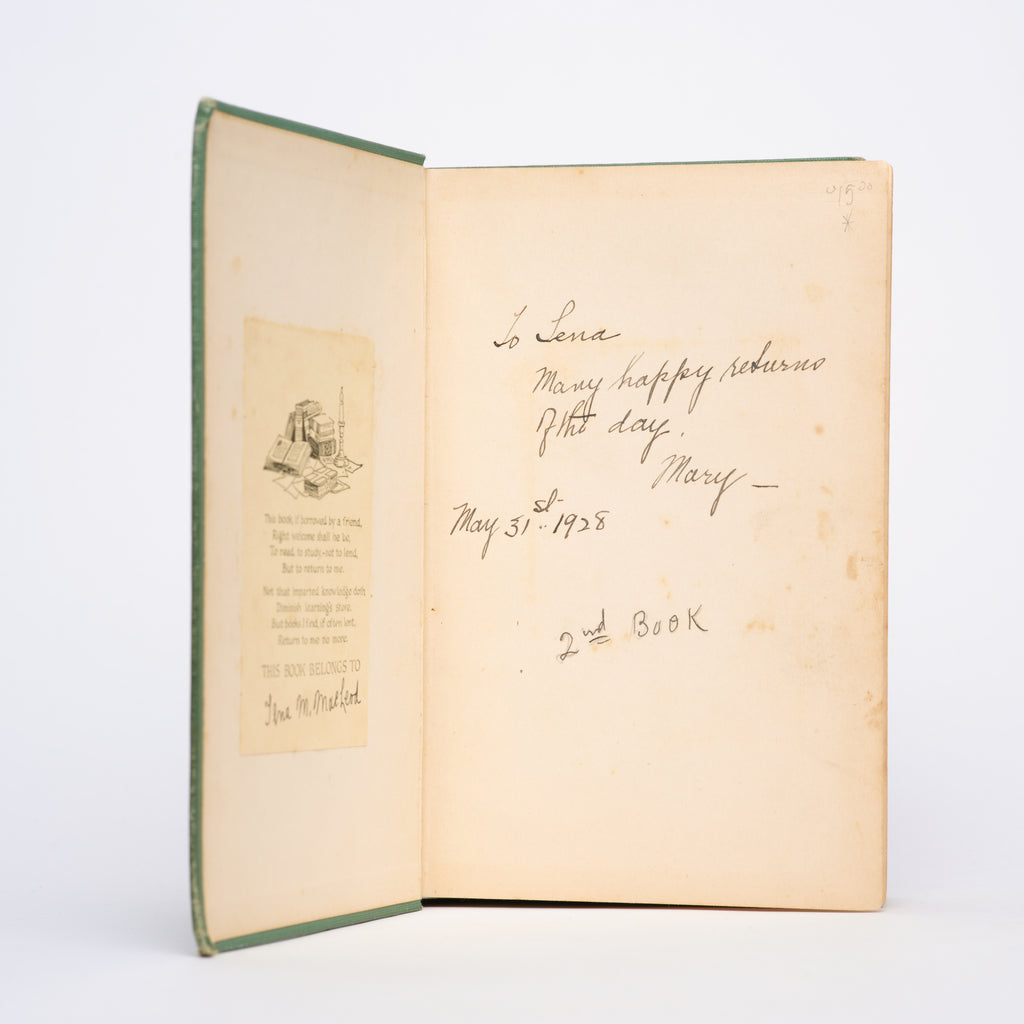 This book, if borrowed by a friend,
Right welcome shall he be,
To read, to study, not to lend,
But to return to me.
Not that imparted knowledge doth
Diminish learning's store,
But books I find, if often lent,
Return to me no more.
THIS BOOK BELONGS TO
Lena M. MacLeod
15.00
*
To Lena
Many happy returns
of the day.
Mary —
May 31st. 1928
2nd BOOK